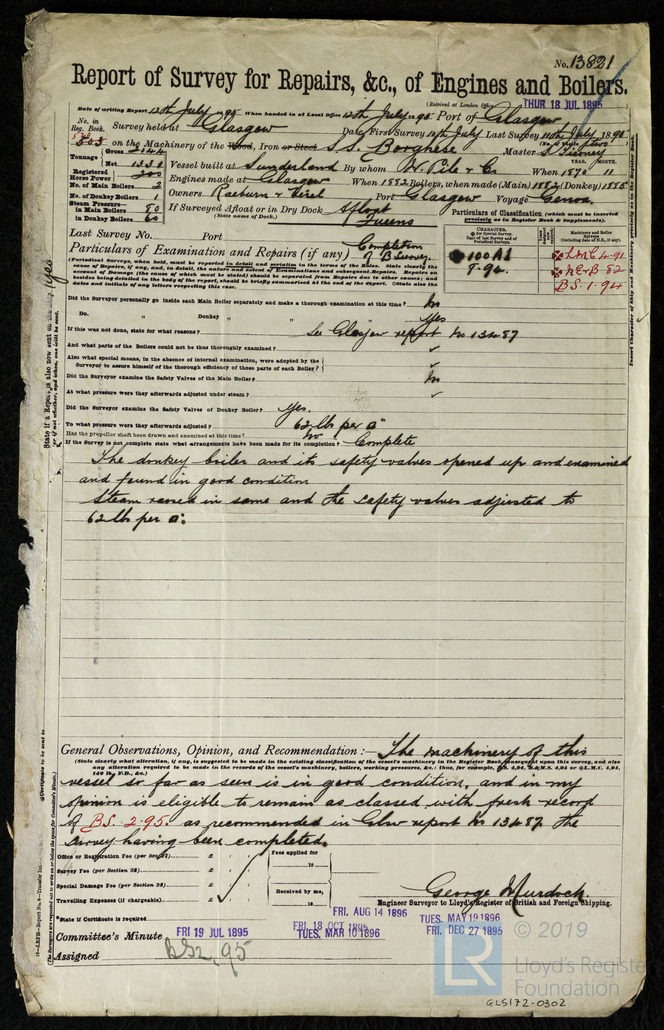 No. 13821
Report of Survey for Repairs, &c., of Engines and Boilers.
(Received at London Office THUR 18 JUL 1895
Date of writing Report 12th July 95 When handed in at Local Office 12th July 1895 Port of Glasgow
No. in Reg. Book. Survey held at Glasgow Date, First Survey 10th July Last Survey 11th July 1895
(No. of Visits two)
503 on the Machinery of the Wood, Iron or Steel S.S. Borghese Master
Tonnage Gross 2144
Net 1330 Vessel built at Sunderland By whom W. Pile & Co When 1870 11
YEAR. MONTH.
Registered Horse Power 200 Engines made at Glasgow When 1882 Boilers, when made (Main) 1882 (Donkey) 1885
No. of Main Boilers 2
No. of Donkey Boilers 1 Owners Raeburn & Verel Port Glasgow Voyage Genoa
Steam Pressure in Main Boilers 80 If Surveyed Afloat or in Dry Dock Afloat
in Donkey Boilers 60 (State name of Dock.) Queens
Particulars of Classification (which must be inserted precisely as in Register Book & Supplements).
Last Survey No. Port
Particulars of Examination and Repairs (if any) Completion of B Survey.
CHARACTER.
for Special Survey.
Date of last Survey and of Periodical Surveys.
Machinery and Boiler Surveys
(including date of N.B., if any).
100 A1
9.94.
LMC 4.91
NE&B 82
BS. 1.94
Did the Surveyor personally go inside each Main Boiler separately and make a thorough examination at this time? No
Do. " Donkey " " " Yes
If this was not done, state for what reasons? See Glasgow report No 13487
And what parts of the Boilers could not be thus thoroughly examined? ✓
Also what special means, in the absence of internal examination, were adopted by the
Surveyor to assure himself of the thorough efficiency of those parts of each Boiler? ✓
Did the Surveyor examine the Safety Valves of the Main Boiler? No
At what pressure were they afterwards adjusted under steam? ✓
Did the Surveyor examine the Safety Valves of Donkey Boiler? Yes.
To what pressure were they afterwards adjusted? 62 lbs per □"
Has the propeller shaft been drawn and examined at this time? No
If the Survey is not complete state what arrangements have been made for its completion? Complete
The donkey boiler and its safety valves opened up and examined
and found in good condition
Steam raised in same and the safety valves adjusted to
62 lbs per □".
General Observations, Opinion, and Recommendation :— The machinery of this
(State clearly what alteration, if any, is suggested to be made in the existing classification of the vessel's machinery in the Register Book consequent upon this survey, and also
any alteration required to be made in the records of the vessel's machinery, boilers, working pressures, &c.; thus, for example,
140 lb., F.D., &c.)
vessel so far as seen is in good condition, and in my
opinion is eligible to remain as classed with fresh record
of BS. 2-95. as recommended in Glw report No 13487 the
survey having been completed.
Office or Registration Fee (per Sec. 27) £
Survey Fee (per Section 28) £
Special Damage Fee (per Section 28) £
Travelling Expenses (if chargeable) £
Fees applied for
18
Received by me,
18
George Murdoch.
Engineer Surveyor to Lloyd's Register of British and Foreign Shipping.
State if Certificate is required
FRI. AUG 14 1896
TUES. MAY 19 1896
Committee's Minute FRI 19 JUL 1895
FRI. 18 OCT 1895
TUES. MAR 10 1896
FRI. DEC 27 1895
Assigned BS2,95
© 2019
Lloyd's Register
Foundation
GLS172-0302